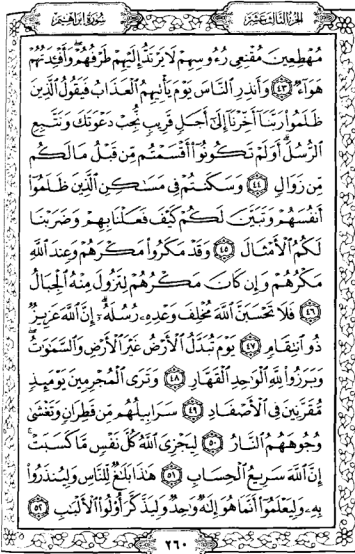 الجزء الثالث عشر
سورة إبراهيم
مُهْطِعِينَ مُقْنِعِى رُءُوسِهِمْ لَا يَرْتَدُّ إِلَيْهِمْ طَرْفُهُمْ وَأَفْـِٔدَتُهُمْ
هَوَآءٌ ٤٣ وَأَنذِرِ النَّاسَ يَوْمَ يَأْتِيهِمُ الْعَذَابُ فَيَقُولُ الَّذِينَ
ظَلَمُوا۟ رَبَّنَآ أَخِّرْنَآ إِلَىٰٓ أَجَلٍ قَرِيبٍ نُّجِبْ دَعْوَتَكَ وَنَتَّبِعِ
الرُّسُلَ أَوَلَمْ تَكُونُوٓا۟ أَقْسَمْتُم مِّن قَبْلُ مَا لَكُم
مِّن زَوَالٍ ٤٤ وَسَكَنتُمْ فِى مَسَٰكِنِ الَّذِينَ ظَلَمُوٓا۟
أَنفُسَهُمْ وَتَبَيَّنَ لَكُمْ كَيْفَ فَعَلْنَا بِهِمْ وَضَرَبْنَا
لَكُمُ الْأَمْثَالَ ٤٥ وَقَدْ مَكَرُوا۟ مَكْرَهُمْ وَعِندَ اللَّهِ
مَكْرُهُمْ وَإِن كَانَ مَكْرُهُمْ لِتَزُولَ مِنْهُ الْجِبَالُ
٤٦ فَلَا تَحْسَبَنَّ اللَّهَ مُخْلِفَ وَعْدِهِۦ رُسُلَهُۥٓ إِنَّ اللَّهَ عَزِيزٌ
ذُو انتِقَامٍ ٤٧ يَوْمَ تُبَدَّلُ الْأَرْضُ غَيْرَ الْأَرْضِ وَالسَّمَٰوَٰتُ
وَبَرَزُوا۟ لِلَّهِ الْوَٰحِدِ الْقَهَّارِ ٤٨ وَتَرَى الْمُجْرِمِينَ يَوْمَئِذٍ
مُّقَرَّنِينَ فِى الْأَصْفَادِ ٤٩ سَرَابِيلُهُم مِّن قَطِرَانٍ وَتَغْشَىٰ
وُجُوهَهُمُ النَّارُ ٥٠ لِيَجْزِىَ اللَّهُ كُلَّ نَفْسٍ مَّا كَسَبَتْ
إِنَّ اللَّهَ سَرِيعُ الْحِسَابِ ٥١ هَٰذَا بَلَٰغٌ لِّلنَّاسِ وَلِيُنذَرُوا۟
بِهِۦ وَلِيَعْلَمُوٓا۟ أَنَّمَا هُوَ إِلَٰهٌ وَٰحِدٌ وَلِيَذَّكَّرَ أُو۟لُوا۟ الْأَلْبَٰبِ ٥٢
٢٦٠